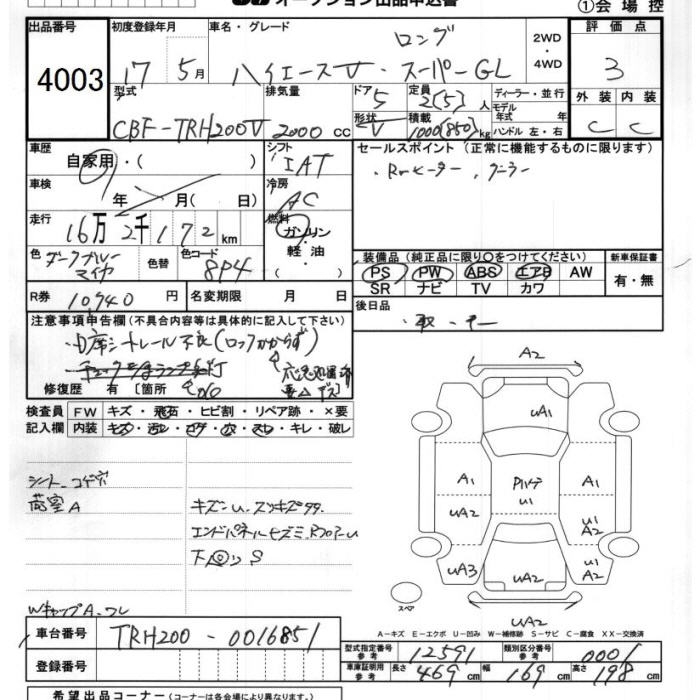 オークション出品申込書
①会場控
出品番号
4003
初度登録年月
17 5月
車名・グレード
ロング
ハイエースV・スーパーGL
2WD
・
4WD
評価点
3
型式
CBF-TRH200V
排気量
2000 cc
ドア
5
定員
2(5)人
形状
V
積載
1000(850)kg
ディーラー・並行
モデル
年式 年
ハンドル 左・右
外装 内装
C C
車歴
自家用・( )
シフト
IAT
セールスポイント (正常に機能するものに限ります)
・Rrヒーター,クーラー
車検
年 月( 日)
冷房
AC
走行
16万2千172km
燃料
ガソリン
・
軽油
( )
色
ダークブルー
マイカ
色替
色コード
8P4
装備品 (純正品に限り○をつけてください)
新車保証書
PS PW ABS エアB AW
SR ナビ TV カワ
有・無
R券 10940円
名変期限 月 日
後日品
・取・キー
注意事項申告欄 (不具合内容等は具体的に記入して下さい)
・D席シートレール不良(ロックかからず)
修復歴 有 [箇所
検査員
記入欄
FW キズ・飛石・ヒビ割・リペア跡・×要
内装 キズ・汚レ・コゲ・穴・スレ・キレ・破レ
シート コゲ穴
荷室A
キズ
エンドパネル
下回り S
WキャップA.ワレ
A2
uA1
A1
uA2
Pハゲ
u1
A1
u1
A2
uA3
uA2
u1
A2
uA2
スペア
A-キズ E-エクボ U-凹み W-補修跡 S-サビ C-腐食 XX-交換済
車台番号
TRH200-0016851
登録番号
型式指定番号
参考
12591
類別区分番号
参考
0001
車庫証明用
参考
長さ 469cm 幅 169cm 高さ 198cm
希望出品コーナー (コーナーは各会場により異なります)